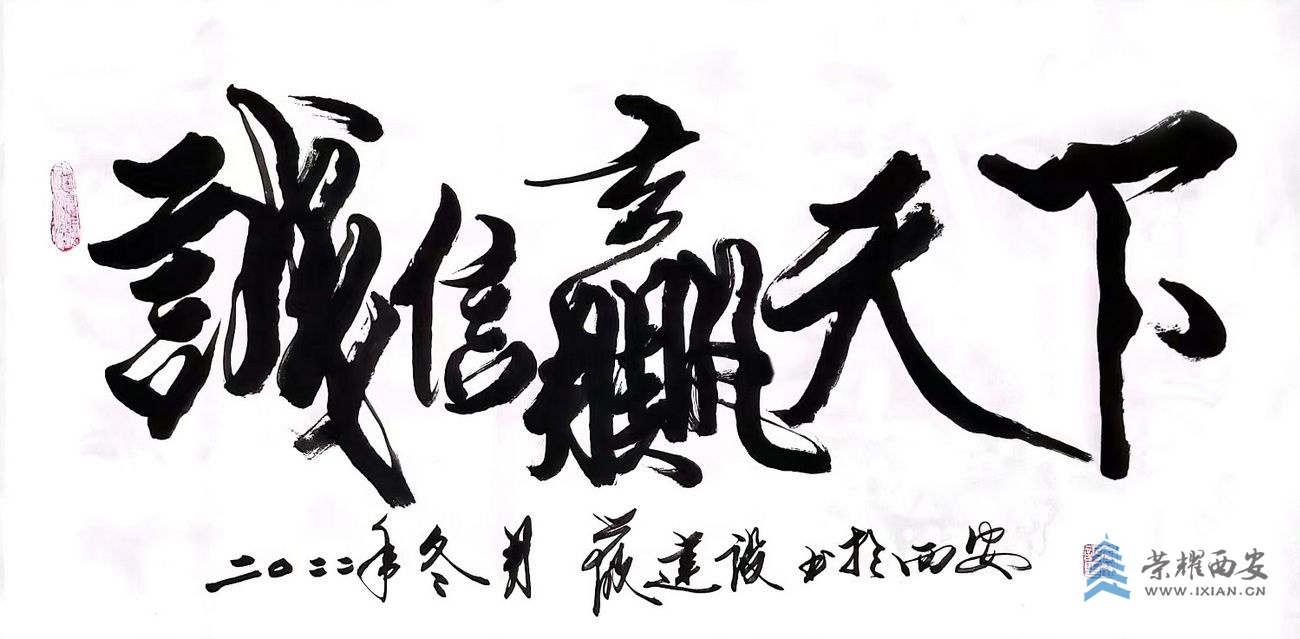 誠信贏天下
二〇二二年冬月 薛建设书于西安
荣耀西安
WWW.IXIAN.CN